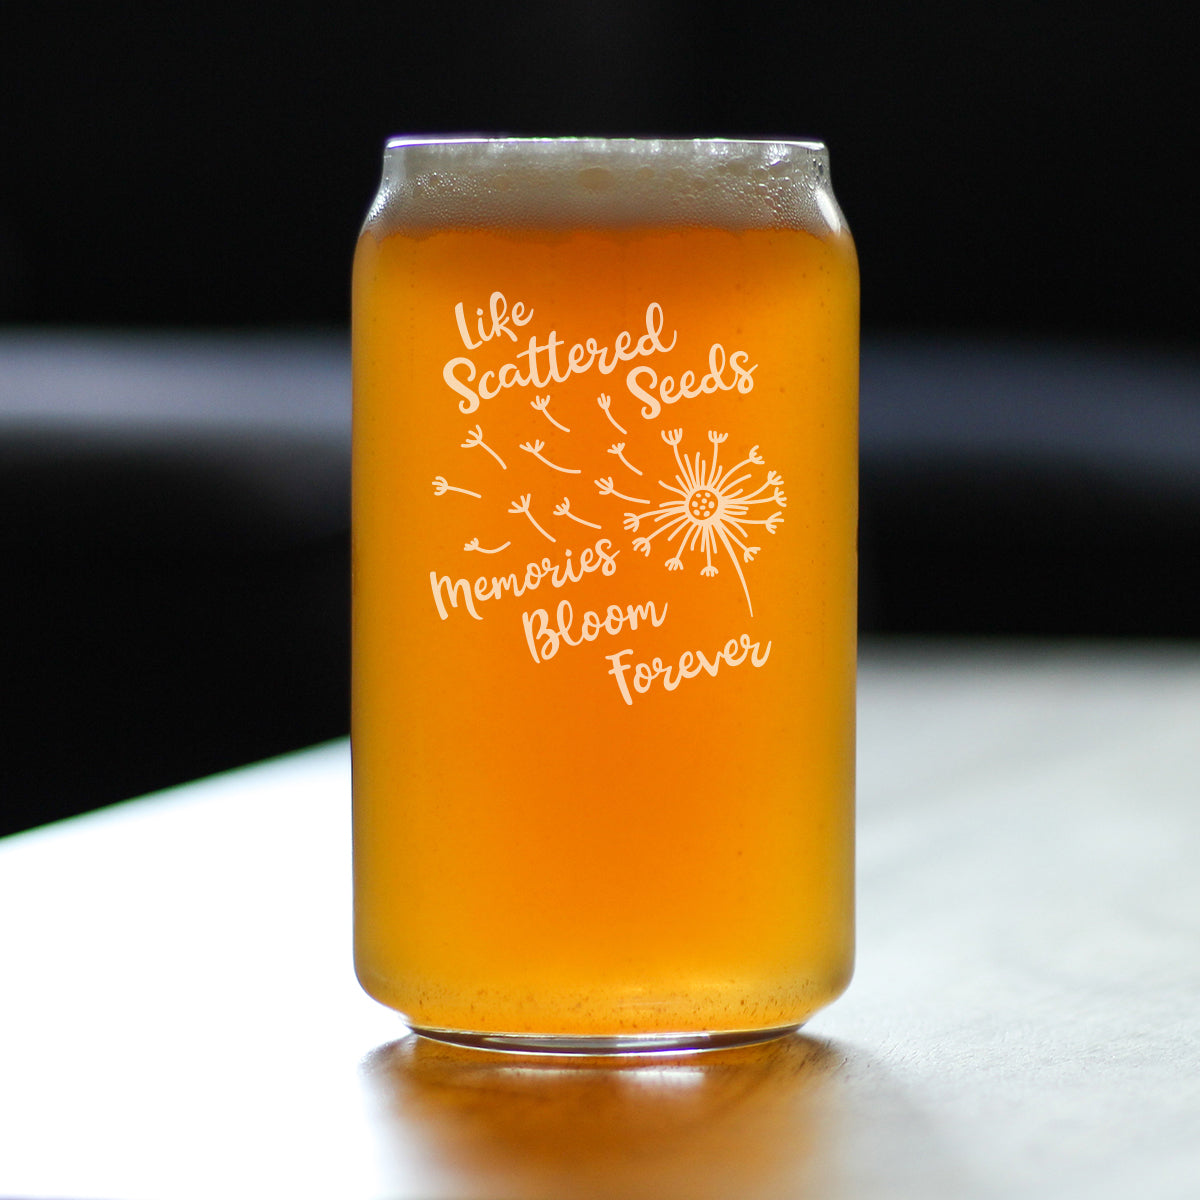 Like
Scattered
Seeds
Memories
Bloom
Forever